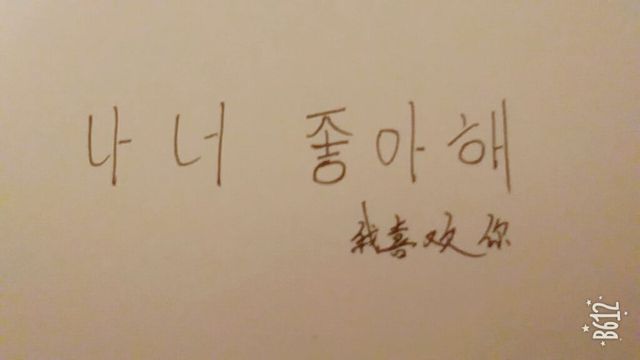 나 너 좋아해
我喜欢你
B612